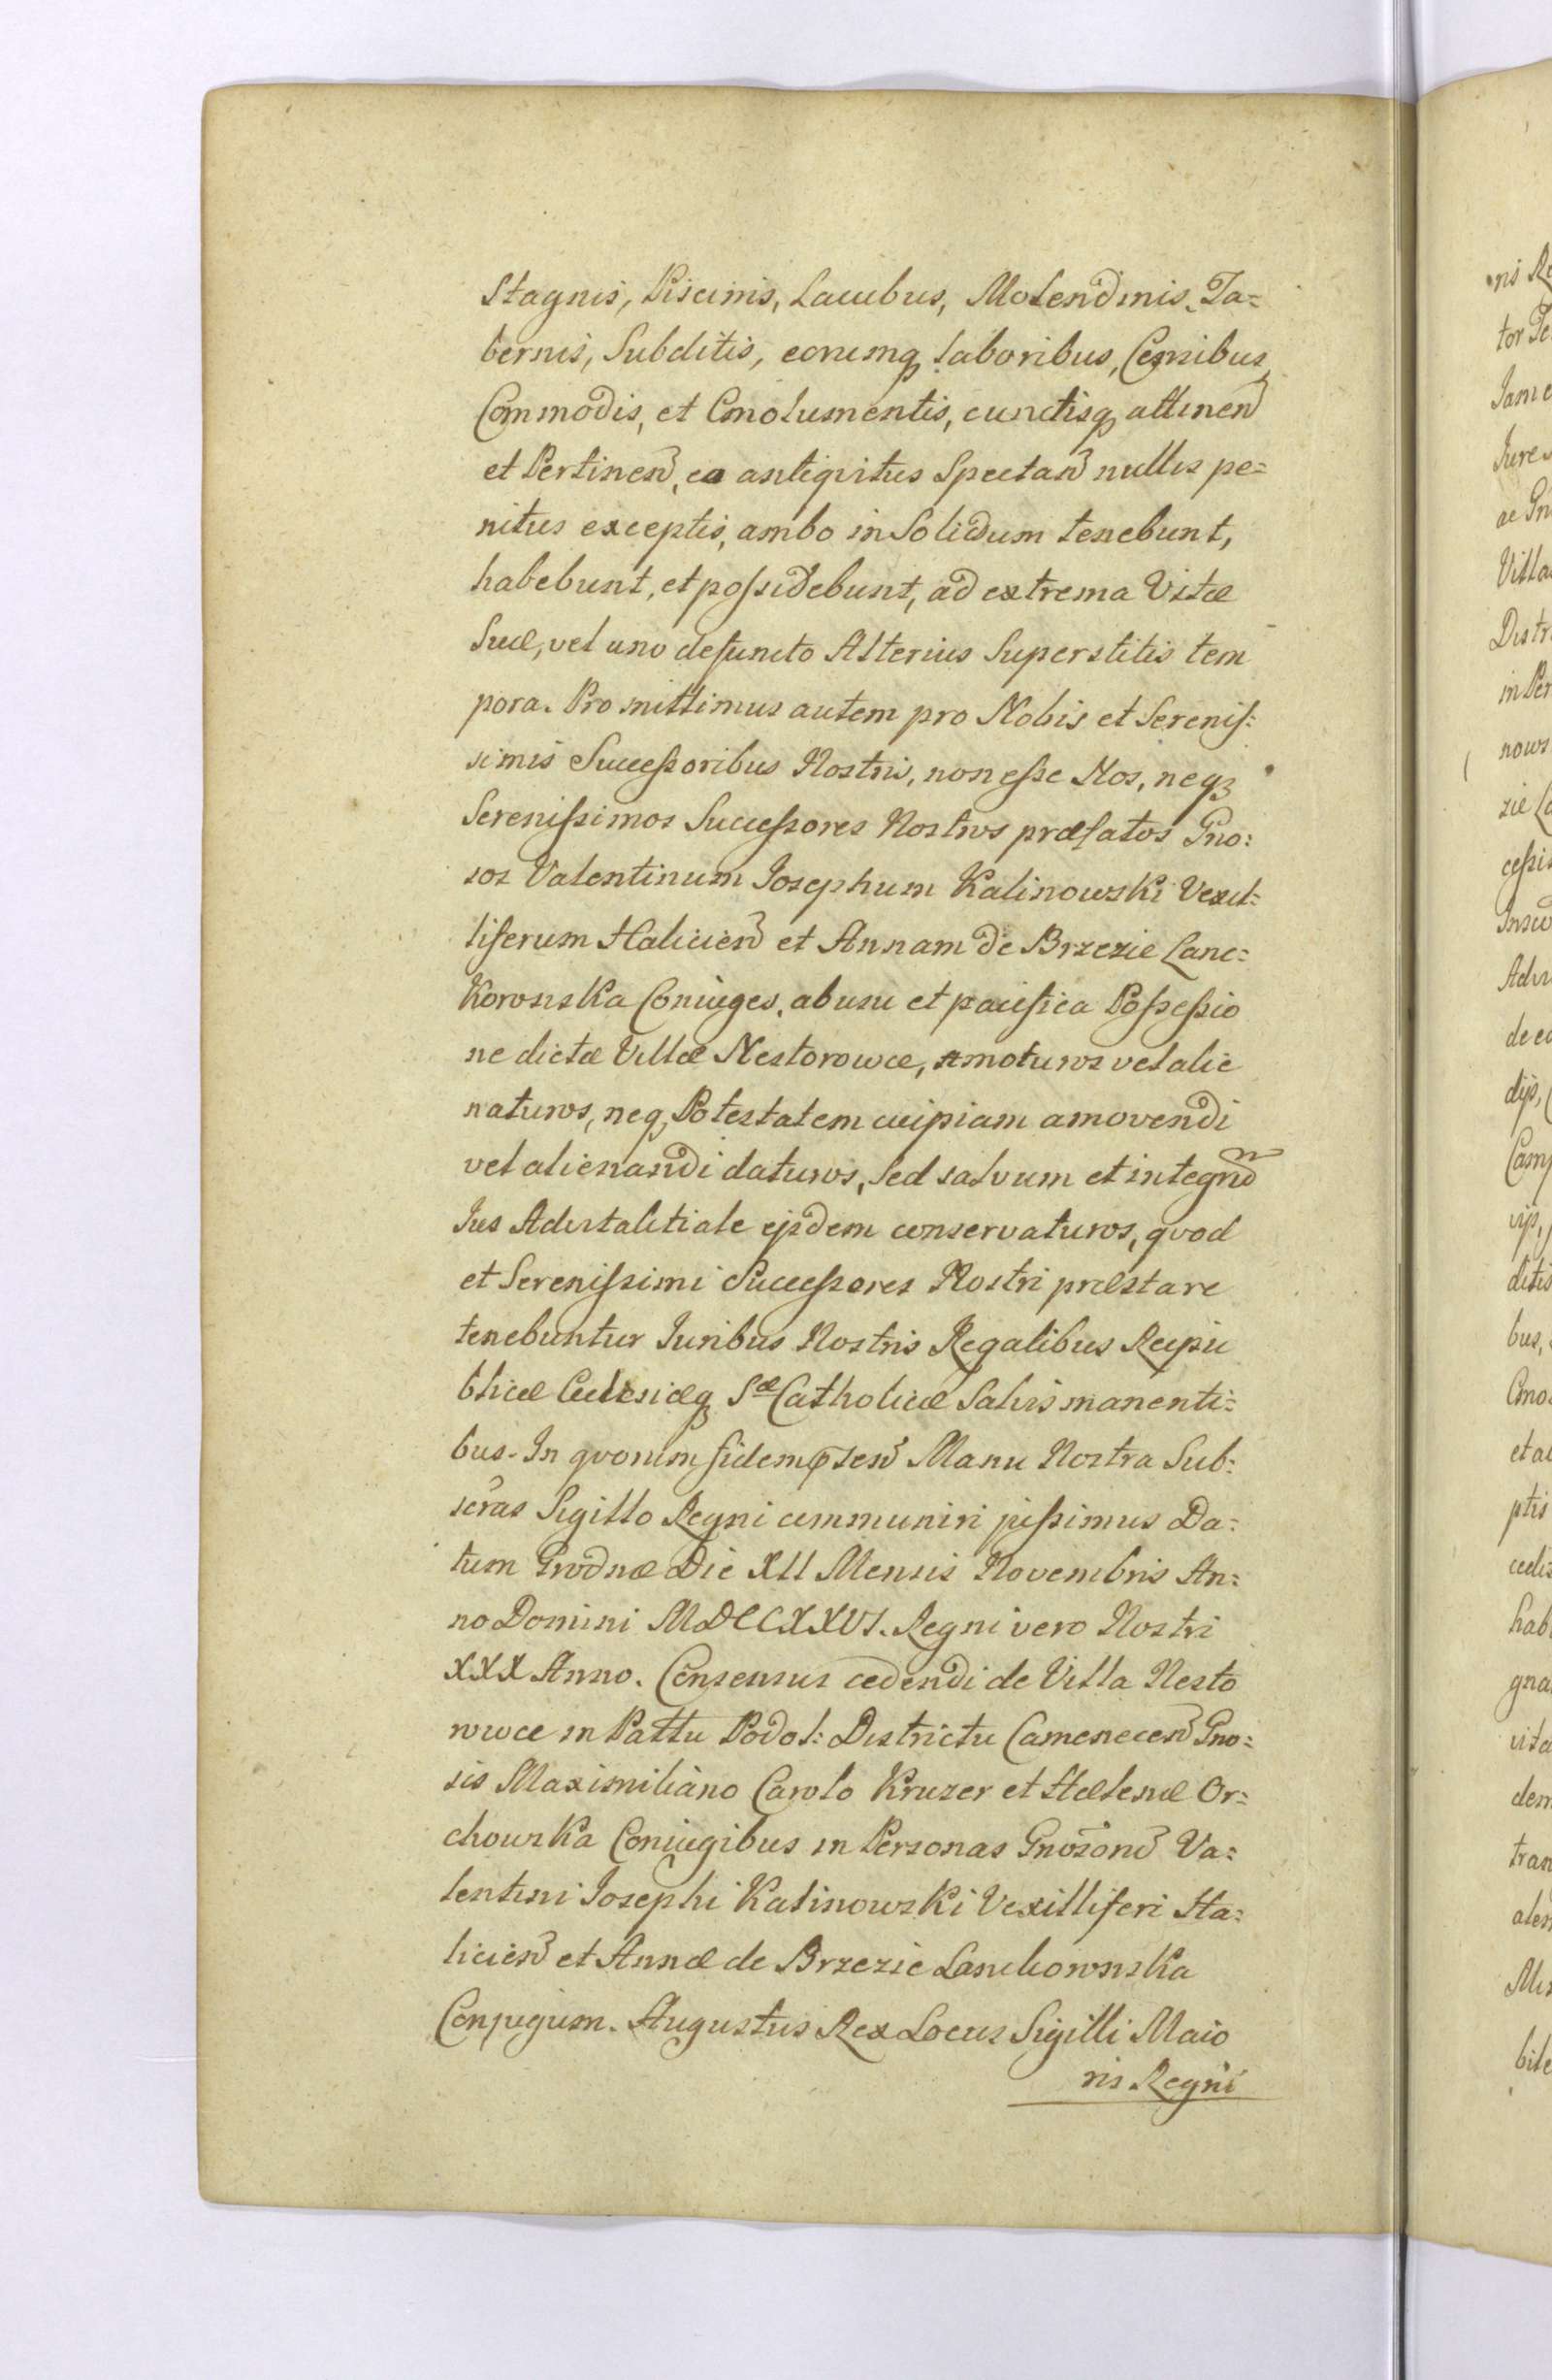 Stagnis, Piscinis, Lacubus, Molendinis, Ta=
bernis, Subditis, eorumq laboribus, Censibus,
Commodis, et Emolumentis, cunctisq attinen
et Pertinen, ea antiqvitus Spectan nullis pe=
nitus exceptis, ambo in Solidum tenebunt,
habebunt, et poſsidebunt, ad extrema Vitæ
Suæ, vel uno defuncto Alterius Superstitis tem
pora. Promittimus autem pro Nobis et Sereniſ:
simis Succeſsoribus Nostris, non eſse Nos, neqꝫ
Sereniſsimos Succeſsores Nostros præfatos Gno:
sos Valentinum Josephum Kalinowski Vexil:
liferum Halicien et Annam de Brzezie Lanc=
Koronska Coniuges, ab usu et pacifica Poſseſsio
ne dictæ Villæ Nestorowce, amoturos vel alie
naturos, neq Potestatem cuipiam amovendi
vel alienandi daturos, Sed salvum et integrum
Jus Advitalitiale ejsdem conservaturos, qvod
et Sereniſsimi Succeſsores Nostri præstare
tenebuntur Juribus Nostris Regalibus Reipu
blicæ Ecclesiæq Sæ Catholicæ Salvis manenti:
bus. In qvorum fidem pꝛsen Manu Nostra Sub:
scras Sigillo Regni communiri juſsimus Da:
tum Grodnæ Die XII Mensis Novembris An:
no Domini MDCCXXVI. Regni vero Nostri
XXX Anno. Consensus cedendi de Villa Nesto
rowce in Pattu Podol: Districtu Camenecen Gno=
sis Maximiliano Carolo Kruzer et Hælenæ Or=
chowska Coniugibus in Personas Gnosoru Va:
lentini Josephi Kalinowski Vexilliferi Ha:
licien et Annæ de Brzezie Lanckoronska
Conjugum. Augustus Rex Locus Sigilli Maio
ris Regni